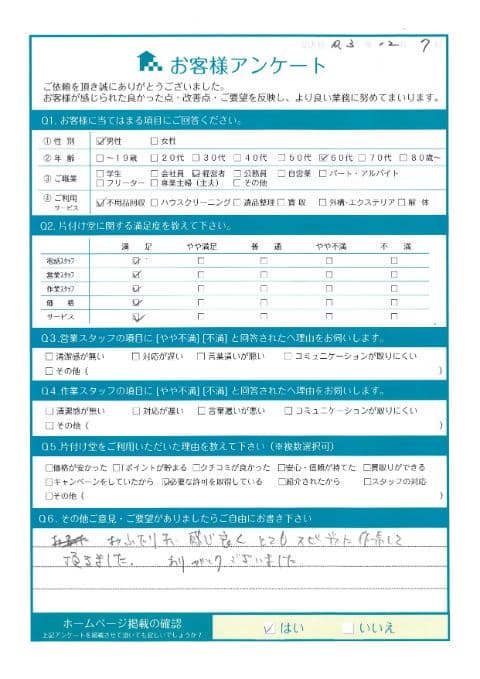 R3 年 12 月 7
お客様アンケート
ご依頼を頂き誠にありがとうございました。
お客様が感じられた良かった点・改善点・ご要望を反映し、より良い業務に努めてまいります。
Q1. お客様に当てはまる項目にご回答ください。
①性 別 ☑男性 □女性
②年 齢 □〜19歳 □20代 □30代 □40代 □50代 ☑60代 □70代 □80歳〜
③ご職業 □学生 □会社員 ☑経営者 □公務員 □自営業 □パート・アルバイト
□フリーター □専業主婦(主夫) □その他
④ご利用サービス ☑不用品回収 □ハウスクリーニング □遺品整理 □買取 □外構・エクステリア □解体
Q2. 片付け堂に関する満足度を教えて下さい。
満 足 やや満足 普 通 やや不満 不 満
電話スタッフ ☑ □ □ □ □
営業スタッフ ☑ □ □ □ □
作業スタッフ ☑ □ □ □ □
価 格 ☑ □ □ □ □
サービス ☑ □ □ □ □
Q3.営業スタッフの項目に [やや不満] [不満] と回答されたへ理由をお伺いします。
□清潔感が無い □対応が遅い □言葉遣いが悪い □コミュニケーションが取りにくい
□その他( )
Q4.作業スタッフの項目に [やや不満] [不満] と回答されたへ理由をお伺いします。
□清潔感が無い □対応が遅い □言葉遣いが悪い □コミュニケーションが取りにくい
□その他( )
Q5.片付け堂をご利用いただいた理由を教えて下さい(※複数選択可)
□価格が安かった □Tポイントが貯まる □クチコミが良かった □安心・信頼が持てた □買取りができる
□キャンペーンをしていたから ☑必要な許可を取得している □紹介されたから □スタッフの対応
□その他( )
Q6. その他ご意見・ご要望がありましたらご自由にお書き下さい
おふたり共 感じ良く とても スピやかに作業して
頂きました。 ありがとうございました
ホームページ掲載の確認
上記アンケートを掲載させて頂いても宜しいでしょうか?
☑はい □いいえ